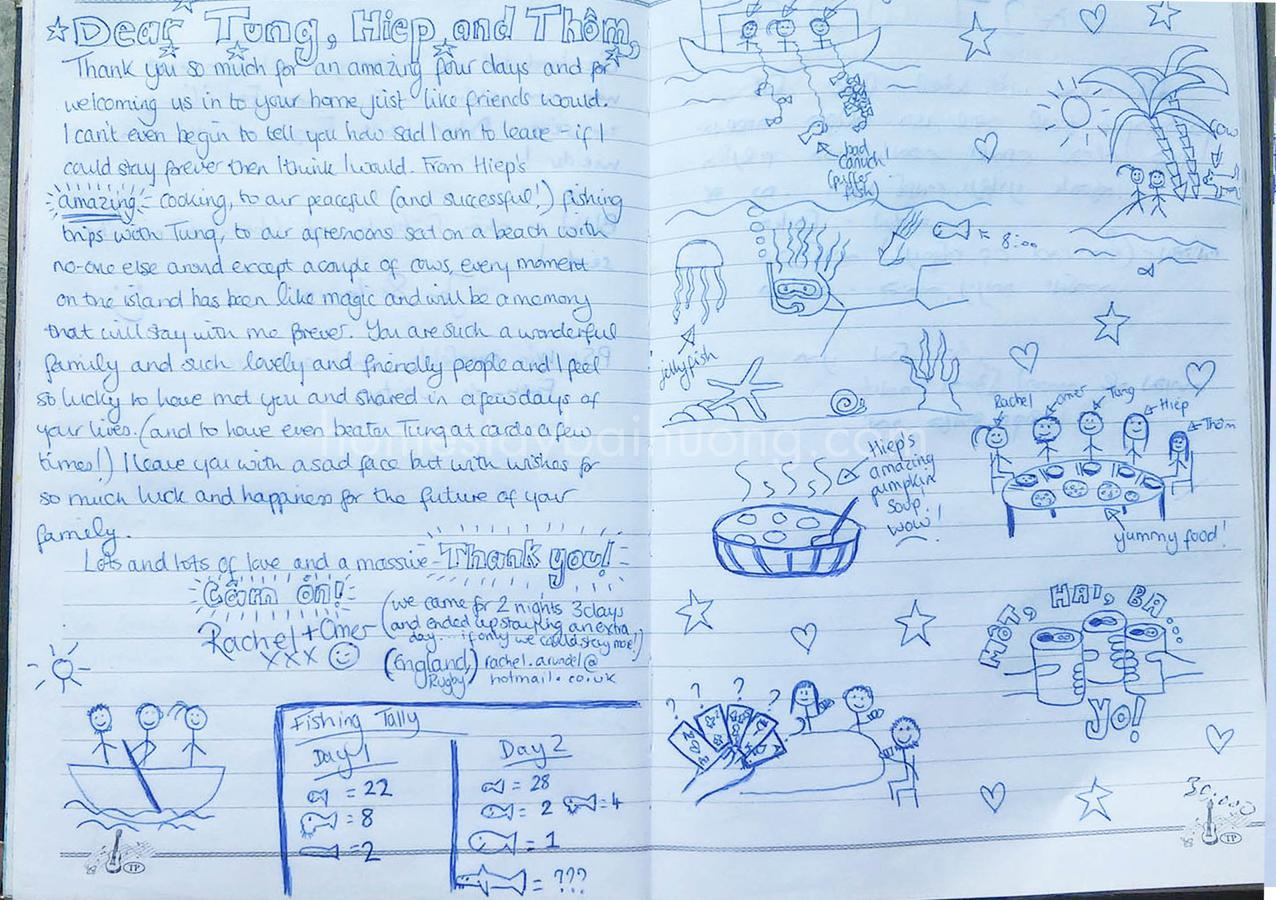 Dear Tung, Hiep and Thôm,
Thank you so much for an amazing four days and for
welcoming us in to your home just like friends would.
I can't even begin to tell you how sad I am to leave - if I
could stay forever then I think I would. From Hiep's
amazing cooking, to our peaceful (and successful!) fishing
trips with Tung, to our afternoons sat on a beach with
no-one else around except a couple of cows, every moment
on the island has been like magic and will be a memory
that will stay with me forever. You are such a wonderful
family and such lovely and friendly people and I feel
so lucky to have met you and shared in a few days of
your lives. (and to have even beaten Tung at cards a few
times!) I leave you with a sad face but with wishes for
so much luck and happiness for the future of your
family.
Lots and lots of love and a massive Thank you!
Cảm ơn!
Rachel + Omer
xxx
(we came for 2 nights 3 days
and ended up staying an extra
day... if only we could stay more!)
(England,) rachel.arundel@
Rugby hotmail.co.uk
Fishing Tally
Day 1
= 22
= 8
= 2
Day 2
= 28
= 2 = 4
= 1
= ???
bad
catch!
(puffer
fish)
cow
jellyfish
Rachel
Omer
Tung
Hiep
Thôm
yummy food!
Hiep's
amazing
pumpkin
soup!
wow!
MỘT, HAI, BA...
YO!
? ? ? ?
30.000
TP
TP
homestaybaihuong.com